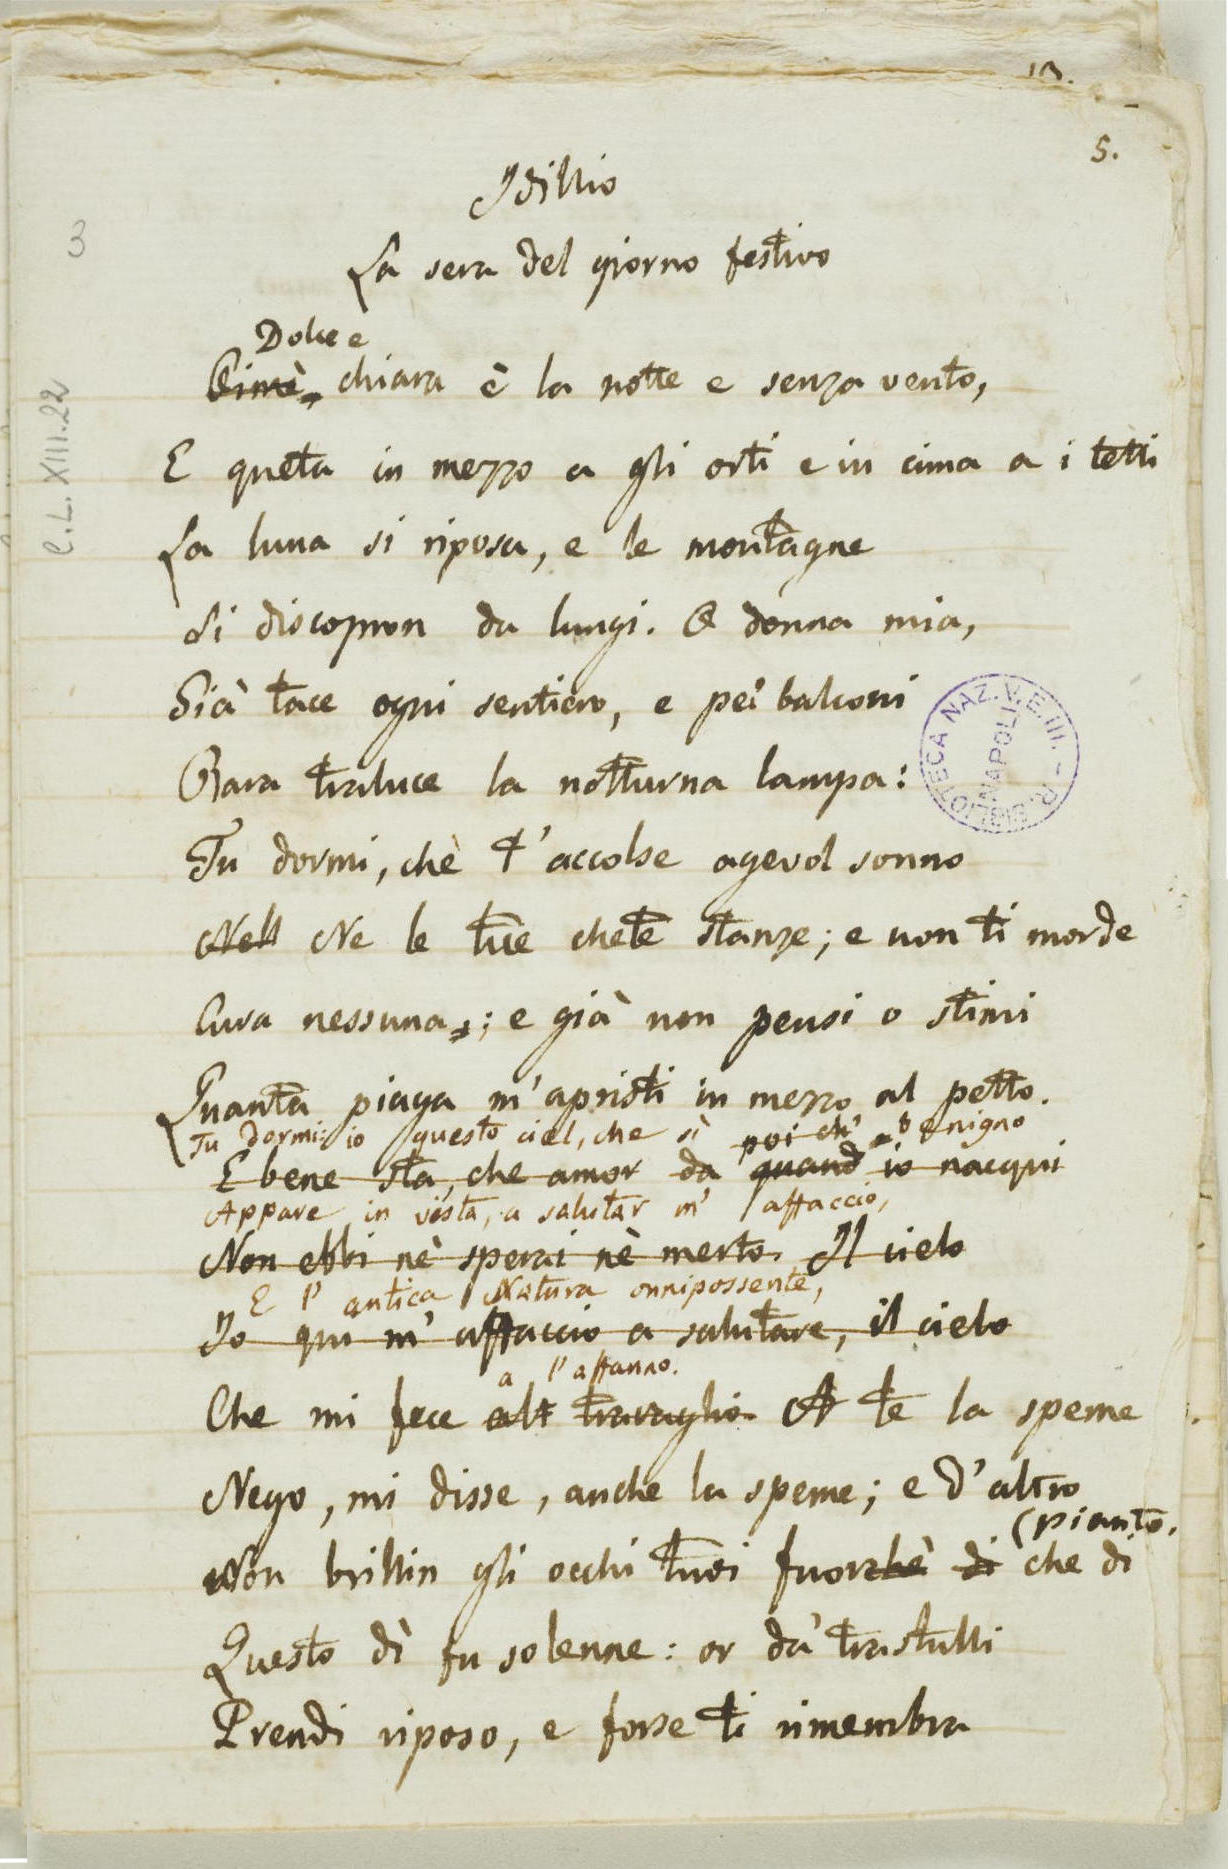 13.
5.
3
Idillio
La sera del giorno festivo
C.L. XIII.22
Dolce e
Oimè, chiara è la notte e senza vento,
E queta in mezzo a gli orti e in cima a i tetti
La luna si riposa, e le montagne
Si discopron da lungi. O donna mia,
Già tace ogni sentiero, e pei balconi
Rara traluce la notturna lampa:
BIBLIOTECA NAZ. V. E. III. - R.
NAPOLI
Tu dormi, chè t'accolse agevol sonno
Nell Ne le tue chete stanze; e non ti morde
Cura nessuna,; e già non pensi o stimi
Quanta piaga m'apristi in mezzo al petto.
Tu dormi: io questo ciel, che sì benigno
poi ch'
E bene sta, che amor da quand io nacqui
Appare in vista, a salutar m'affaccio,
Non ebbi nè sperai nè merto. Il cielo
E l'antica Natura onnipossente,
Io qui m'affaccio a salutare, il cielo
a l'affanno.
Che mi fece all travaglio. A te la speme
Nego, mi disse, anche la speme; e d'altro
(pianto.
Non brillin gli occhi tuoi fuorchè di che di
Questo dì fu solenne: or da' trastulli
Prendi riposo, e forse ti rimembra